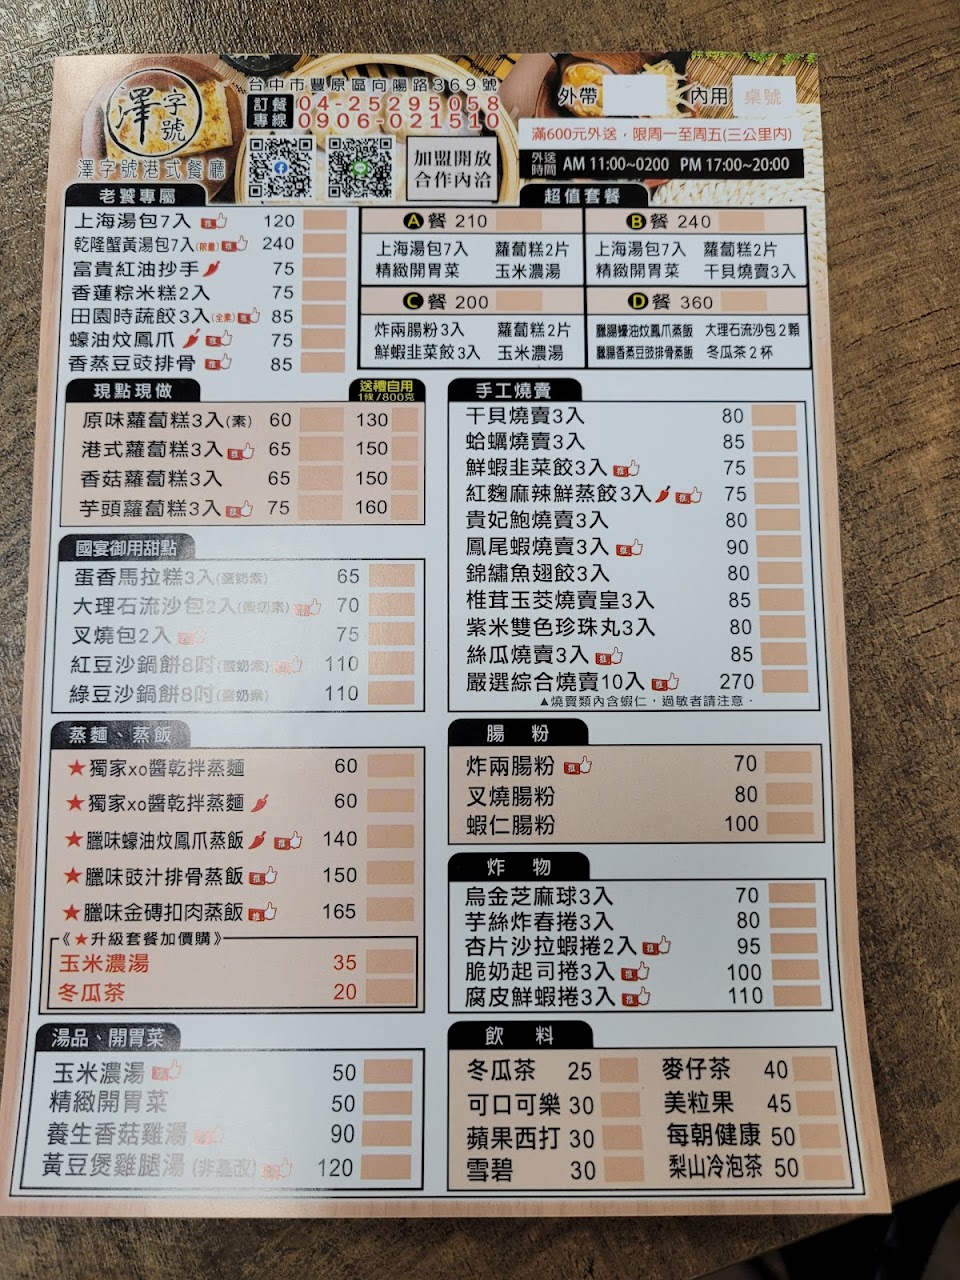 澤字號
澤字號港式餐廳
台中市豐原區向陽路369號
訂餐專線 04-25295058
0906-021510
加盟開放
合作內洽
外帶 內用 桌號
滿600元外送，限周一至周五(三公里內)
外送時間 AM 11:00~0200 PM 17:00~20:00
老饕專屬
上海湯包7入 推 120
乾隆蟹黃湯包7入(限量) 推 240
富貴紅油抄手 75
香蓮粽米糕2入 75
田園時蔬餃3入(全素) 推 85
蠔油炆鳳爪 推 75
香蒸豆豉排骨 推 85
超值套餐
A餐 210
上海湯包7入 蘿蔔糕2片
精緻開胃菜 玉米濃湯
B餐 240
上海湯包7入 蘿蔔糕2片
精緻開胃菜 干貝燒賣3入
C餐 200
炸兩腸粉3入 蘿蔔糕2片
鮮蝦韭菜餃3入 玉米濃湯
D餐 360
臘腸蠔油炆鳳爪蒸飯 大理石流沙包2顆
臘腸香蒸豆豉排骨蒸飯 冬瓜茶2杯
現點現做
送禮自用
1條/800克
原味蘿蔔糕3入(素) 60 130
港式蘿蔔糕3入 推 65 150
香菇蘿蔔糕3入 65 150
芋頭蘿蔔糕3入 推 75 160
國宴御用甜點
蛋香馬拉糕3入(蛋奶素) 65
大理石流沙包2入(蛋奶素) 推 70
叉燒包2入 推 75
紅豆沙鍋餅8吋(蛋奶素) 推 110
綠豆沙鍋餅8吋(蛋奶素) 110
蒸麵、蒸飯
★獨家xo醬乾拌蒸麵 60
★獨家xo醬乾拌蒸麵 60
★臘味蠔油炆鳳爪蒸飯 推 140
★臘味豉汁排骨蒸飯 推 150
★臘味金磚扣肉蒸飯 推 165
《★升級套餐加價購》
玉米濃湯 35
冬瓜茶 20
湯品、開胃菜
玉米濃湯 推 50
精緻開胃菜 50
養生香菇雞湯 推 90
黃豆煲雞腿湯 (非基改) 推 120
手工燒賣
干貝燒賣3入 80
蛤蠣燒賣3入 85
鮮蝦韭菜餃3入 推 75
紅麴麻辣鮮蒸餃3入 推 75
貴妃鮑燒賣3入 80
鳳尾蝦燒賣3入 推 90
錦繡魚翅餃3入 80
椎茸玉茭燒賣皇3入 85
紫米雙色珍珠丸3入 80
絲瓜燒賣3入 推 85
嚴選綜合燒賣10入 推 270
▲燒賣類內含蝦仁，過敏者請注意。
腸 粉
炸兩腸粉 推 70
叉燒腸粉 80
蝦仁腸粉 100
炸 物
烏金芝麻球3入 70
芋絲炸春捲3入 80
杏片沙拉蝦捲2入 推 95
脆奶起司捲3入 推 100
腐皮鮮蝦捲3入 推 110
飲 料
冬瓜茶 25 麥仔茶 40
可口可樂 30 美粒果 45
蘋果西打 30 每朝健康 50
雪碧 30 梨山冷泡茶 50